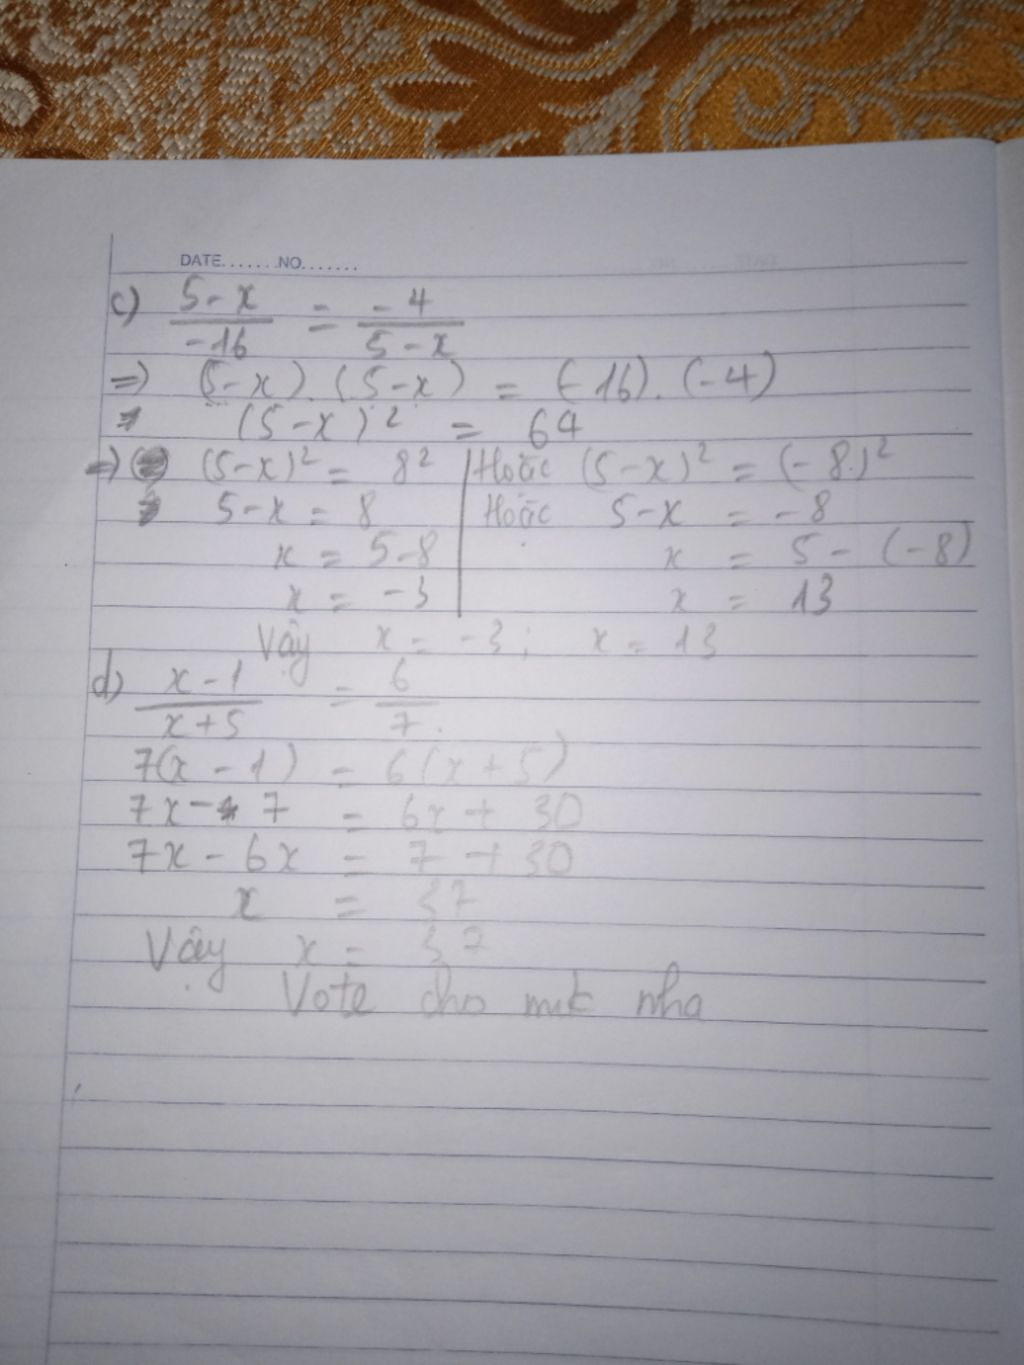 DATE.......NO.......
c) (5-x)/(-16) = (-4)/(5-x)
=> (5-x).(5-x) = (-16).(-4)
(5-x)² = 64
=> (5-x)² = 8² | Hoặc (5-x)² = (-8)²
5-x = 8 | Hoặc 5-x = -8
x = 5-8 | x = 5-(-8)
x = -3 | x = 13
Vậy x = -3; x = 13
d) (x-1)/(x+5) = 6/7
7(x-1) = 6(x+5)
7x-7 = 6x+30
7x-6x = 7+30
x = 37
Vậy x = 37
Vote cho mk nha